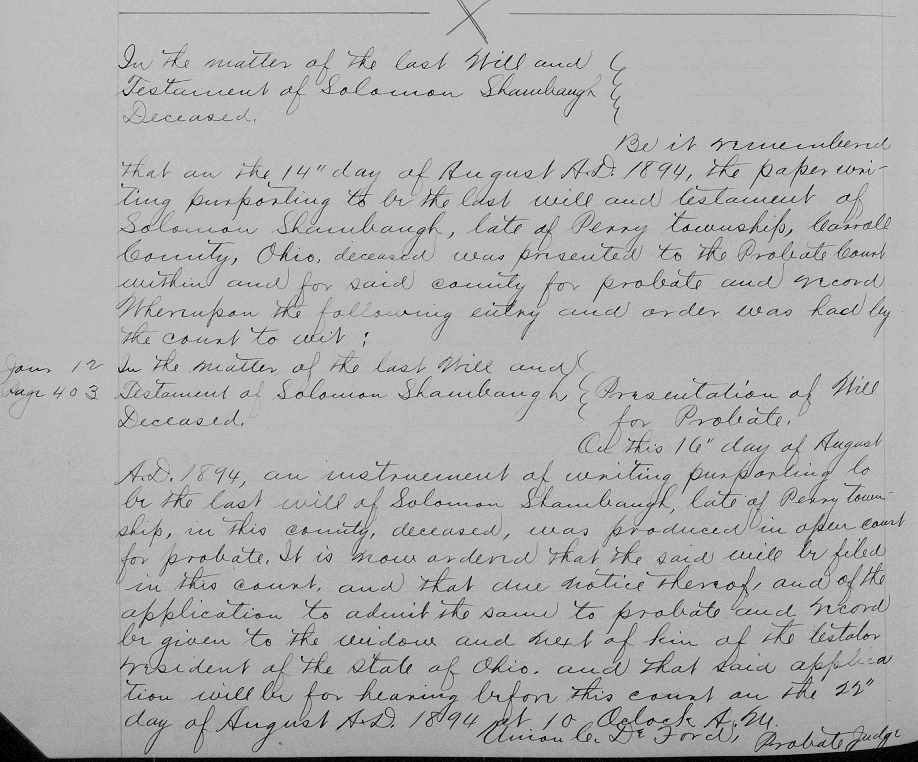 In the matter of the last Will and
Testament of Solomon Shambaugh
Deceased.
Be it remembered
that on the 14" day of August A.D. 1894, the paper wri-
ting purporting to be the last will and testament of
Solomon Shambaugh, late of Perry township, Carroll
County, Ohio, deceased was presented to the Probate Court
within and for said county for probate and record
Whereupon the following entry and order was had by
the court to wit:
Jour 12 In the matter of the last Will and
Page 403 Testament of Solomon Shambaugh Presentation of Will
Deceased. for Probate.
On this 16" day of August
A.D. 1894, an instruement of writing purporting to
be the last will of Solomon Shambaugh, late of Perry town-
ship, in this county, deceased, was produced in open court
for probate. It is now ordered that the said will be filed
in this court, and that due notice thereof, and of the
application to admit the same to probate and record
be given to the widow and next of kin of the testator
resident of the state of Ohio. and that said applica
tion will be for hearing before this court on the 22"
day of August A.D. 1894 at 10 Oclock A.M.
Union C. De Ford, Probate Judge